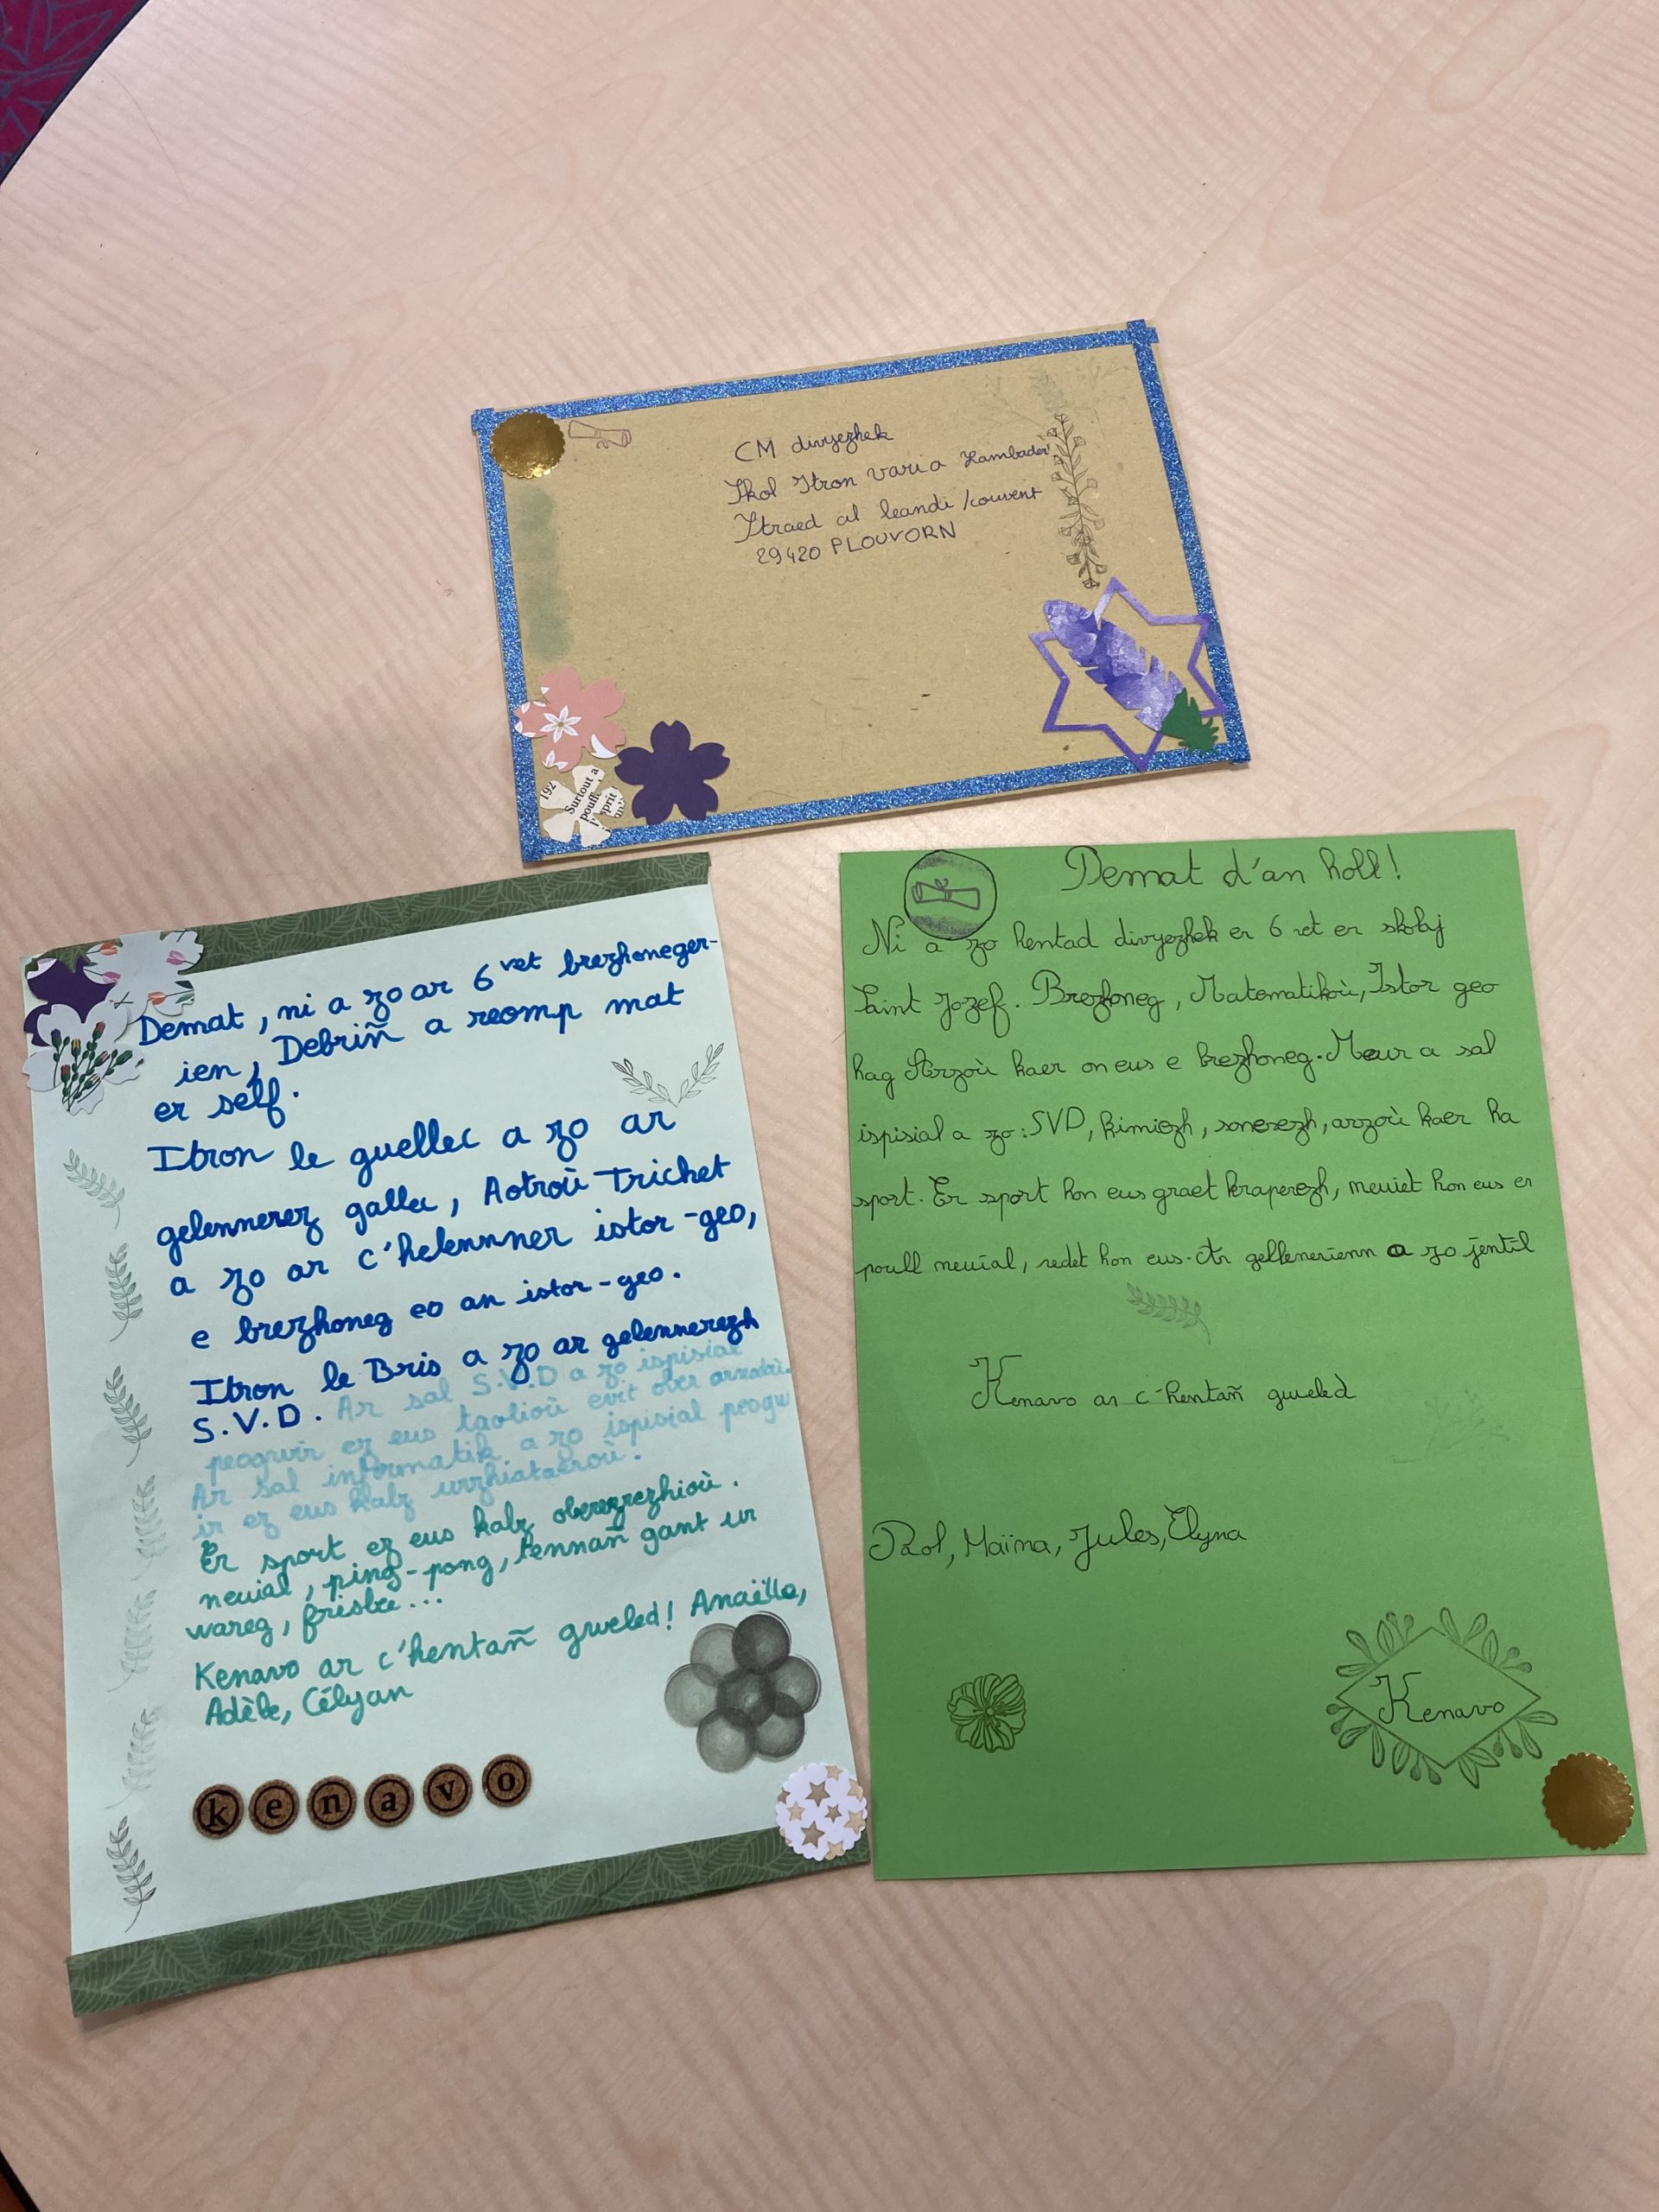 CM divyezhek
Skol Itron varia Lambader
Straed al leandi / couvent
29420 PLOUVORN
192
Surtout a
pouff
sprit
Demat, ni a zo ar 6 vet brezhoneger-
ien, Debriñ a reomp mat
er self.
Itron le guellec a zo ar
gelennerez gallec, Aotroù Trichet
a zo ar c'helennner istor-geo,
e brezhoneg eo an istor-geo.
Itron le Bris a zo ar gelennerezh
S.V.D. Ar sal S.V.D a zo ispisial
peogwir ez eus taolioù evit ober
Ar sal informatik a zo ispisial peogw
ir ez eus kalz urzhiataeroù.
Er sport ez eus kalz oberezrezhioù.
neuial, ping-pong, tennañ gant ur
wareg, frisbee...
Kenavo ar c'hentañ gweled! Anaëlle,
Adèle, Célyan
kenavo
Demat d'an holl!
Ni a zo hentad divyezhek er 6 vet er skolaj
Saint Jozef. Brezoneg, Matematikoù, Istor geo
hag Arzoù kaer on eus e brezhoneg. Meur a sal
ispisial a zo: SVD, kimiezh, sonerezh, arzoù kaer ha
sport. Er sport hon eus graet kraperezh, neuiet hon eus er
poull neuial, redet hon eus. Ar gellenerienn a zo jentil
Kenavo ar c'hentañ gweled
Paol, Maïna, Jules, Elyna
Kenavo